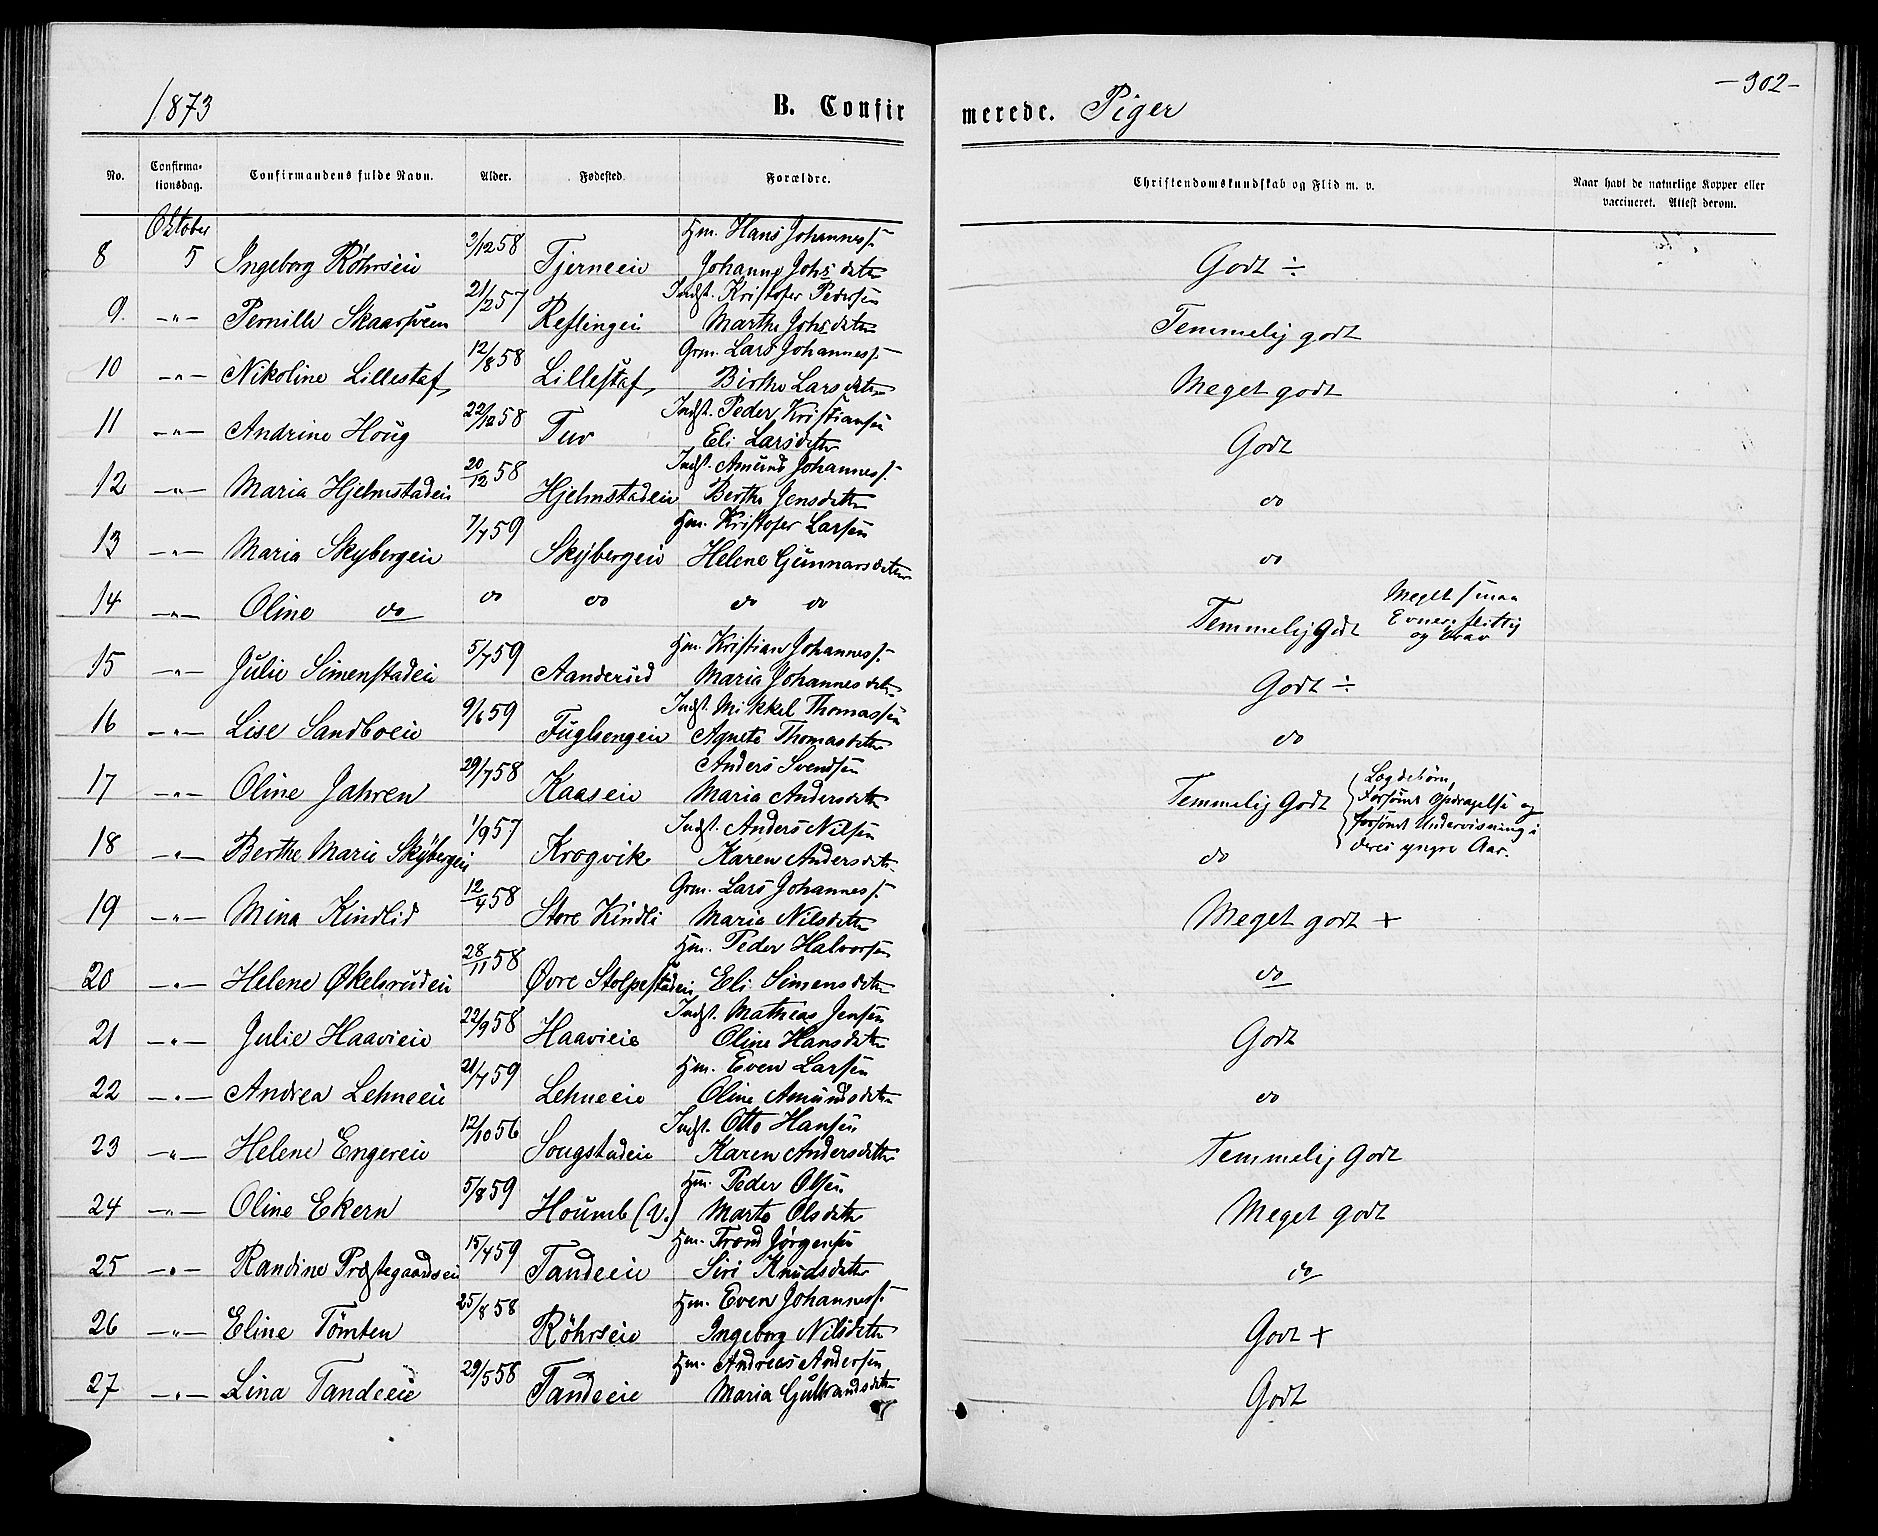 1873 B. Confirmerede. Piger -302-
No. Confirmationsdag. Confirmandens fulde Navn. Alder. Fødested. Forældre. Christendomskundskab og Flid m. v. Naar havt de naturlige Kopper eller vaccineret. Attest derom.
Oktober
Hm. Hans Johanness.
8 5 Ingeborg Röhrseie 3/12 58 Tjerneeie Johanne Johsdatter Godt ÷
Indst. Kristofer Pedersen
9. -"- Pernille Skaarsveen 21/2 57 Reflingeie Marthe Johsdatter Temmelig godt
Grm. Lars Johanness.
10 -"- Nikoline Lillestaf 12/8 58 Lillestaf Birthe Larsdatter Meget godt
Indst. Peder Kristiansen
11 -"- Andrine Houg 22/12 58 Tuv Eli Larsdatter Godt
Indst. Amund Johanness.
12 -"- Maria Hjelmstadeie 20/12 58 Hjelmstadeie Berthe Jensdatter do
Hm. Kristofer Larsen
13 -"- Maria Skybergeie 7/7 59 Skybergeie Helene Gunnarsdatter do
14 -"- Oline do do do do do Temmelig godt Meget smaa Evner, flittig og brav
Hm. Kristian Johanness.
15 -"- Julie Simenstadeie 5/7 59 Aanderud Maria Johannesdatter Godt ÷
Indst. Mikkel Thomassen
16 -"- Lise Sandboeie 9/6 59 Fuglsengeie Agnete Thomasdatter do
Anders Svendsen
17 -"- Oline Jahren 29/7 58 Kaaseie Maria Andersdatter Temmelig Godt Lægdebørn, Forsömt Opdragelse og forsömt Undervisning i deres yngre Aar.
Indst. Anders Nilsen
18 -"- Berthe Marie Skybergeie 1/9 57 Krogvik Karen Andersdatter do
Grm. Lars Johanness.
19 -"- Mina Kindlid 12/4 58 Store Kindli Maria Nilsdatter Meget godt +
Hm. Peder Halvorsen
20 -"- Helene Økelsrudeie 28/11 58 Øvre Stolpestadeie Eli Simensdatter do
Indst. Mathias Jensen
21 -"- Julie Haavieie 22/9 58 Haavieie Oline Hansdatter Godt
Hm. Even Larsen
22 -"- Andrea Lehneeie 21/4 59 Lehneeie Oline Amundsdatter do
Indst. Otto Hansen
23 -"- Helene Engereie 12/10 56 Sougstadeie Karen Andersdatter Temmelig Godt
Hm. Peder Olsen
24 -"- Oline Ekern 5/8 59 Houmb (V.) Marte Olsdatter Meget godt
Hm. Trond Jörgensen
25 -"- Randine Præstegaardseie 15/4 59 Tandeeie Siri Knudsdatter do
Hm. Even Johanness.
26 -"- Eline Tömten 25/8 58 Röhrseie Ingeborg Nilsdatter Godt +
Hm. Andreas Andersen
27 -"- Lina Tandeeie 29/5 58 Tandeeie Maria Gulbrandsdatter Godt